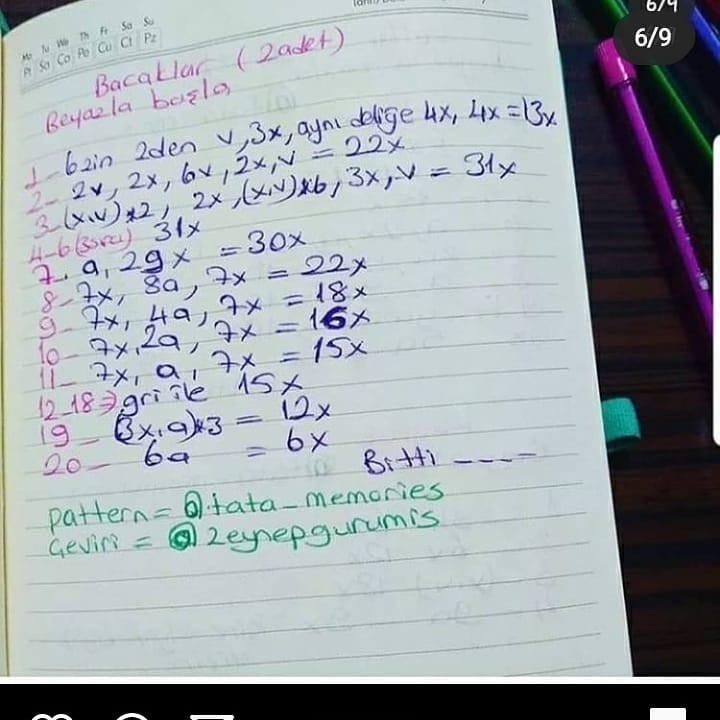 6/9
6/9
Mo Tu We Th Fr Sa Su
Pt Sa Ça Pe Cu Ct Pz
Bacaklar (2 adet)
Beyazla başla
1- 6 zin 2den v, 3x, aynı deliğe 4x, 4x = 13x
2- 2v, 2x, 6v, 2x, v = 22x
3- (x,v)*2, 2x, (x,v)*6, 3x, v = 31x
4-6 (3 sıra) 31x
7- a, 29x = 30x
8- 7x, 8a, 7x = 22x
9- 7x, 4a, 7x = 18x
10- 7x, 2a, 7x = 16x
11- 7x, a, 7x = 15x
12-18 → gri ile 15x
19- (3x,a)*3 = 12x
20- 6a = 6x
Bitti ----
pattern = @.tata_memories
Çeviri = @ zeynepgurumis